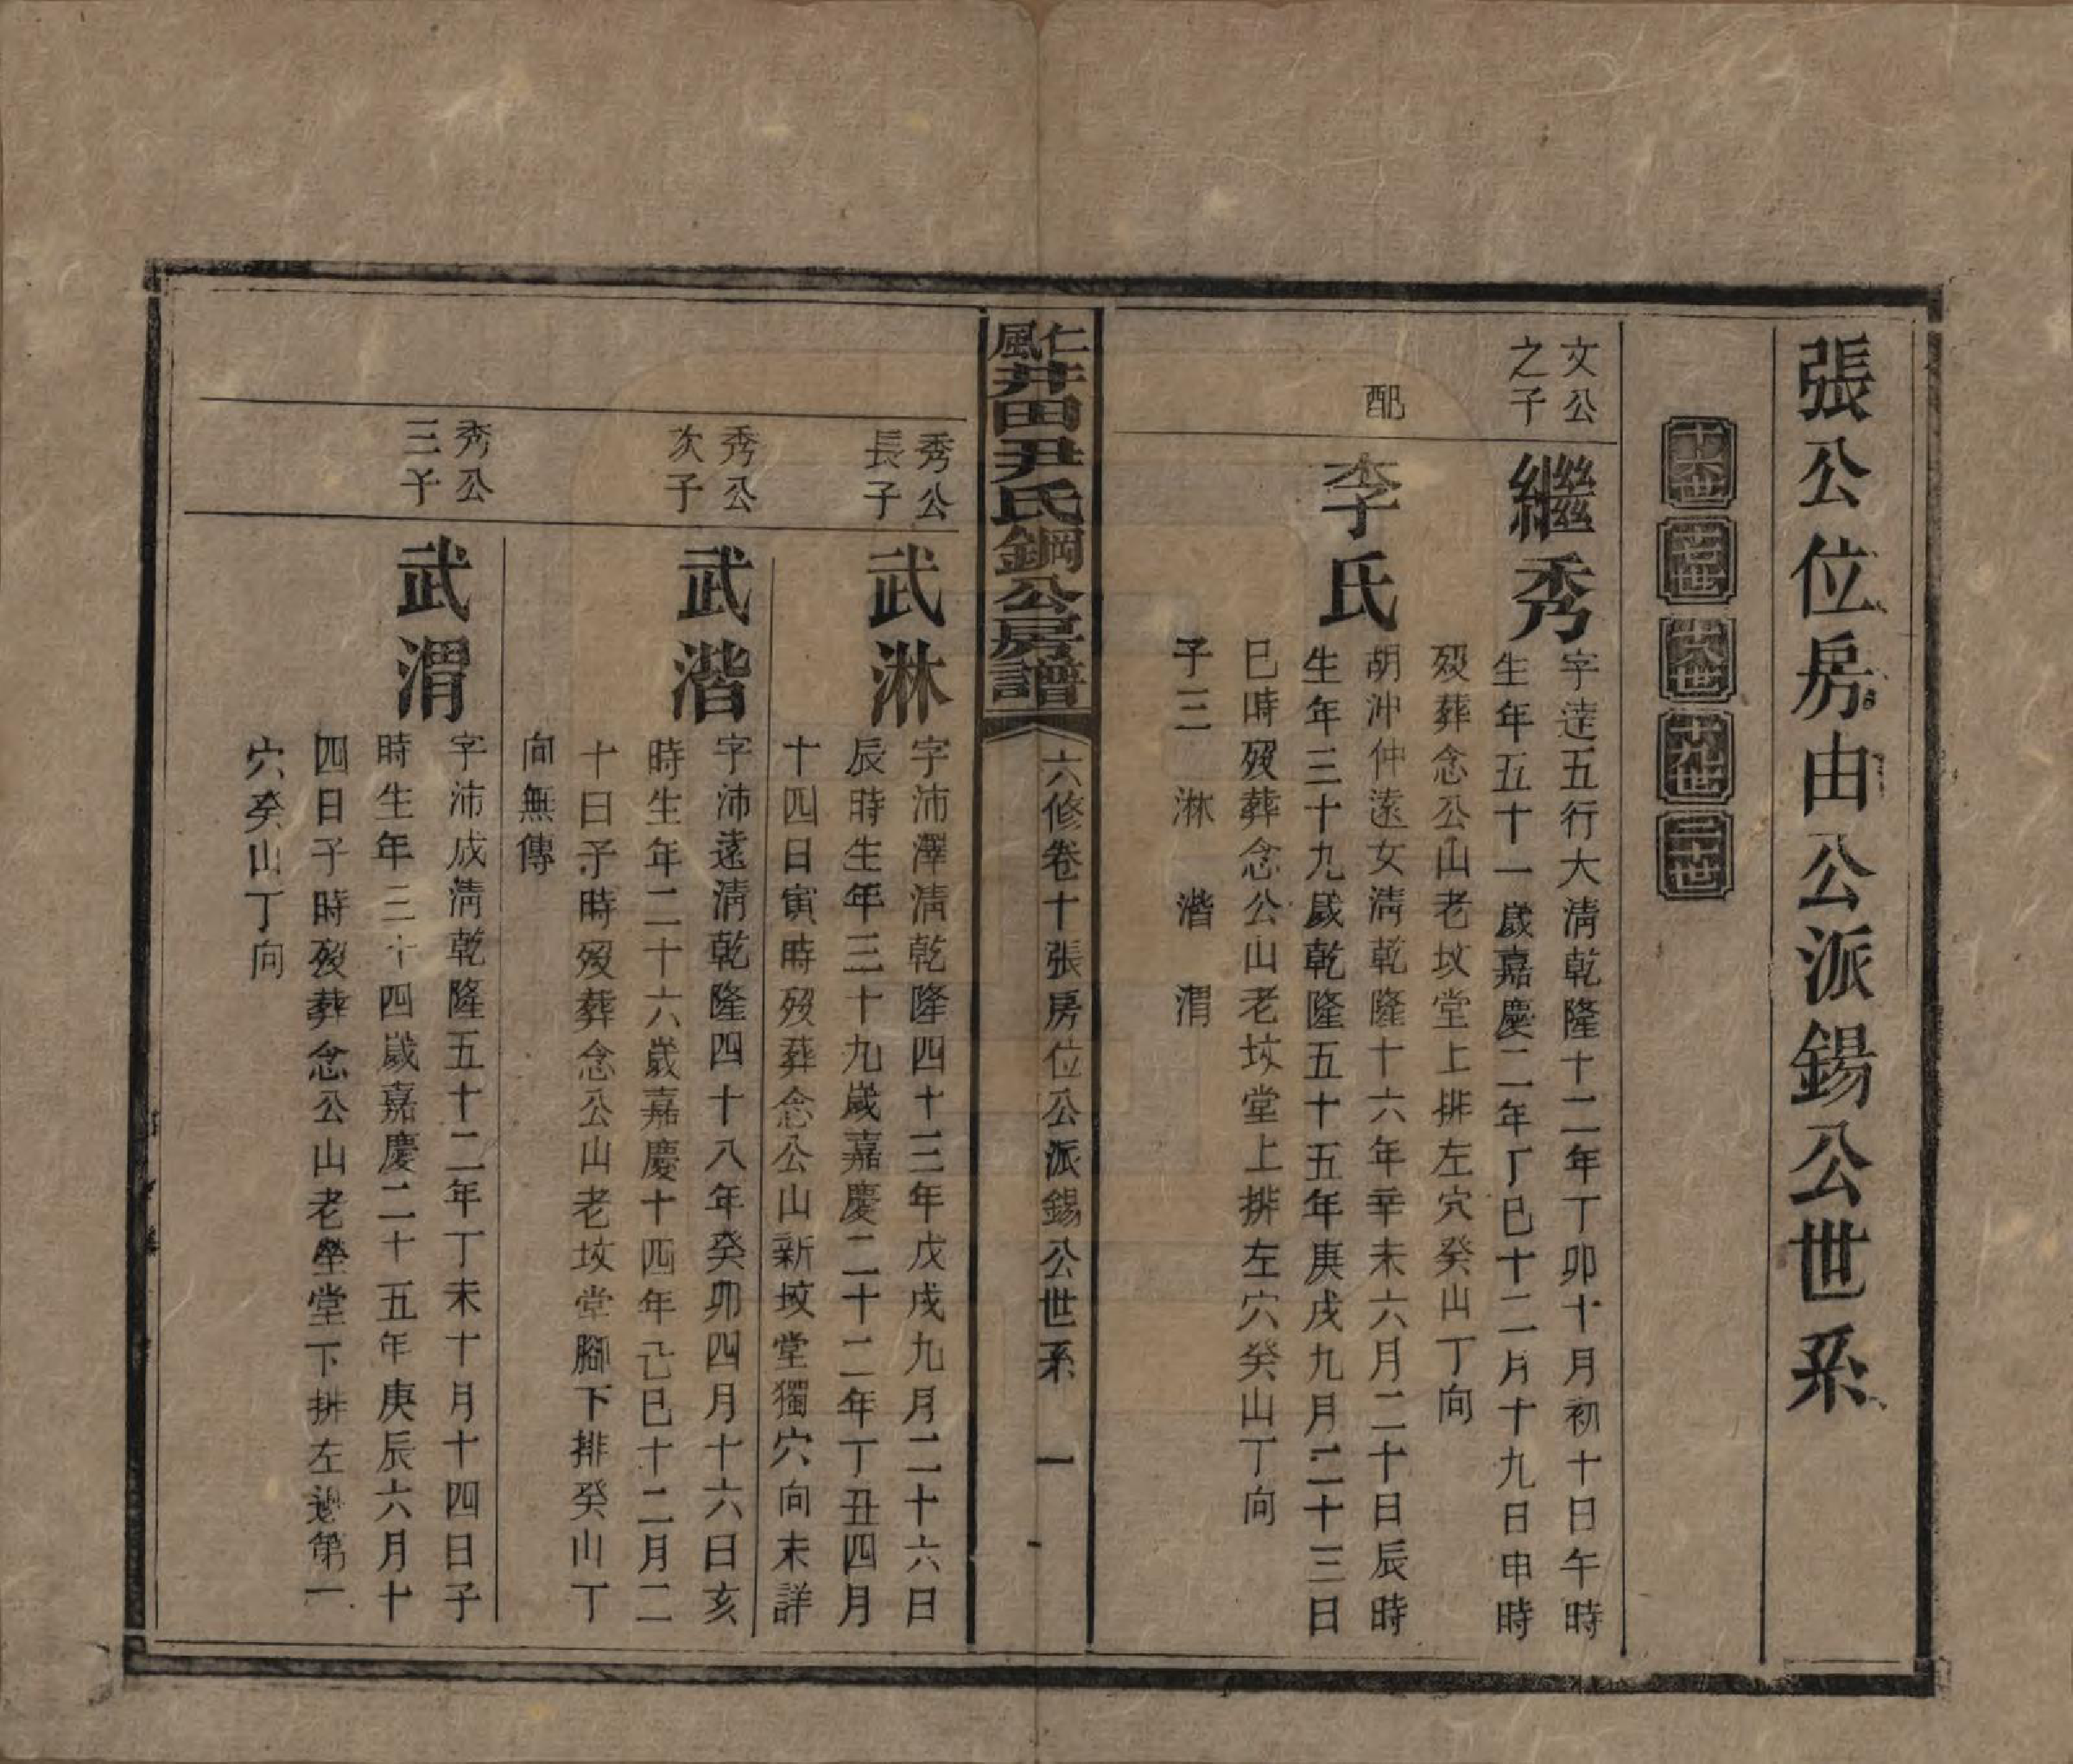 張公位房由公派錫公世系
十六世 十七世 十八世 十九世 二十世
文公
之子
繼秀
字達五行大清乾隆十二年丁卯十月初十日午時
生年五十一歲嘉慶二年丁巳十二月十九日申時
歿葬念公山老坟堂上排左穴癸山丁向
配
李氏
胡沖仲遠女清乾隆十六年辛未六月二十日辰時
生年三十九歲乾隆五十五年庚戌九月二十三日
巳時歿葬念公山老坟堂上排左穴癸山丁向
子三 淋 湝 渭
仁風井田尹氏鋼公房譜
六修卷十張房位公派錫公世系 一
秀公
長子
武淋
字沛澤清乾隆四十三年戊戌九月二十六日
辰時生年三十九歲嘉慶二十二年丁丑四月
十四日寅時歿葬念公山新坟堂獨穴向未詳
秀公
次子
武湝
字沛遠清乾隆四十八年癸卯四月十六日亥
時生年二十六歲嘉慶十四年己巳十二月二
十日子時歿葬念公山老坟堂腳下排癸山丁
向無傳
秀公
三子
武渭
字沛成清乾隆五十二年丁未十月十四日子
時生年三十四歲嘉慶二十五年庚辰六月十
四日子時歿葬念公山老塋堂下排左邊第一
穴癸山丁向